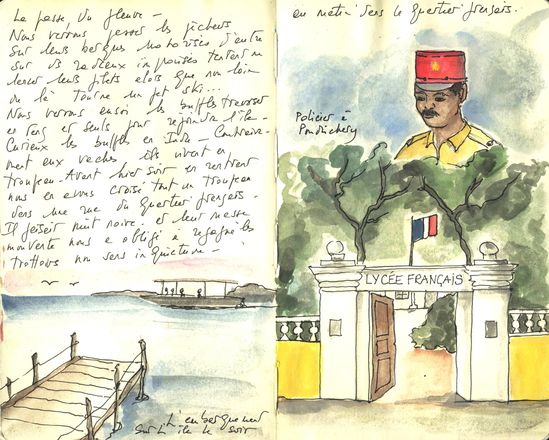 La passe du fleuve -
Nous verrons passer les pêcheurs
sur leurs barques motorisées d'autre
sur des radeaux improvisés tentent de
lancer leurs filets alors que non loin
de là tourne un jet ski...
Nous verrons aussi les buffles traverser
et seuls pour rejoindre l'île -
Curieux les buffles en Inde - Contraire-
ment aux vaches ils vivent en
troupeau. Avant hier soir en rentrant
nous en avons croisé tout un troupeau
dans une rue du quartier français.
Il faisait nuit noire. et leur masse
mouvante nous a obligé à regagner les
trottoirs non sans inquiétude -
L'embarquement
sur l'île le soir
en dans le quartier français.
Policier à
Pondichéry
LYCÉE FRANÇAIS